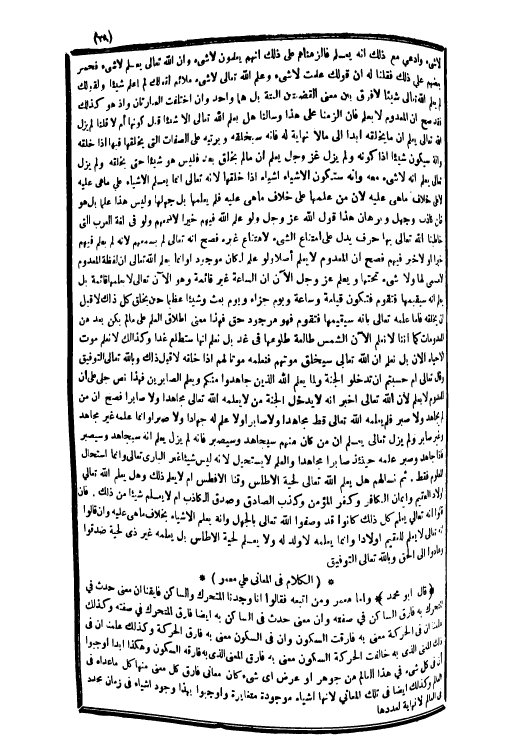 (٣٩)
لاشىء وادعى مع ذلك انه يعلم فالزمناهم على ذلك انهم يعلمون لاشىء وان الله تعالى يعلم لاشىء فجسر
بعضهم على ذلك فقلنا له ان قولك علمت لاشىء وعلم الله تعالى لاشىء ملائم لقولك لم اعلم شيئا ولقولك
لم يعلم الله تعالى شيئا لافرق بين معنى القضيتين البتة بل هما واحد وان اختلفت العبارتان واذ هو كذلك
فقد صح ان المعدوم لايعلم فان الزمنا على هذا وسألنا هل يعلم الله تعالى الاشياء قبل كونها أم لا قلنا لم يزل
تعالى يعلم ان مايخلقه ابدا الى مالا نهاية له فانه سيخلقه ويرتبه على الصفات التى يخلقها فيها اذا خلقه
وانه سيكون شيئا اذا كونه ولم يزل عز وجل يعلم ان مالم يخلق بعد فليس هو شيئا حتى يخلقه ولم يزل
تعالى يعلم انه لاشىء معه وانه ستكون الاشياء اشياء اذا خلقها لانه تعالى انما يعلم الاشياء على ماهى عليه
لاعلى خلاف ماهى عليه لان من علمها على خلاف ماهى عليه فلم يعلمها بل جهلها وليس هذا علما بل هو
ظن كاذب وجهل وبرهان هذا قول الله عز وجل ولو علم الله فيهم خيرا لاسمعهم ولو فى لغة العرب التى
خاطبنا الله تعالى بها حرف يدل على امتناع الشىء لامتناع غيره فصح انه تعالى لم يسمعهم لانه لم يعلم فيهم
خيرا ولاخير فيهم فصح ان المعدوم لايعلم أصلا ولو علم لكان موجودا وانما يعلم الله تعالى ان لفظة المعدوم
لامسمى لها ولا شىء تحتها ويعلم عز وجل الآن ان الساعة غير قائمة وهو الآن تعالى لايعلمها قائمة بل
يعلم انه سيقيمها فتقوم فتكون قيامة وساعة ويوم جزاء ويوم بعث وشيئا عظيما حين يخلق كل ذلك لاقبل
ان يخلقه فانما علمه تعالى بانه سيقيمها فتقوم فهو موجود حق فهذا معنى اطلاق العلم على مالم يكن بعد من
المعدومات كما أننا لانعلم الآن الشمس طالعة طلوعها فى غد بل نعلم انها ستطلع غدا وكذلك لانعلم موت
الاحياء الآن بل نعلم ان الله تعالى سيخلق موتهم فنعلمه موتا لهم اذا خلقه لاقبل ذلك وبالله تعالى التوفيق
وقال تعالى ام حسبتم ان تدخلوا الجنة ولما يعلم الله الذين جاهدوا منكم ويعلم الصابرين فهذا نص جلى على ان
المعدوم لايعلم لأن الله تعالى اخبر انه لايدخل الجنة من لايعلمه الله تعالى مجاهدا ولا صابرا فصح ان من
لم يجاهد ولا صبر فلم يعلمه الله تعالى قط مجاهدا ولاصابرا ولا علم له جهادا ولا صبرا وانما علمه غير مجاهد
وغير صابر ولم يزل تعالى يعلم ان من كان منهم سيجاهد وسيصبر فانه لم يزل يعلم انه سيجاهد وسيصبر
فاذا جاهد وصبر علمه حينئذ صابرا مجاهدا والعلم لايستحيل لانه ليس شيئا غير البارى تعالى وانما استحال
المعلوم فقط . ثم نسألهم هل يعلم الله تعالى لحية الاطلس وقنا الافطس ام لايعلم ذلك وهل يعلم الله تعالى
اولاد العقيم وايمان الكافر وكفر المؤمن وكذب الصادق وصدق الكاذب ام لايعلم شيئا من ذلك . فان
قالوا انه تعالى يعلم كل ذلك كانوا قد وصفوا الله تعالى بالجهل وانه يعلم الاشياء بخلاف ماهى عليه وان قالوا
انه تعالى لايعلم للعقيم اولادا وانما يعلمه لاولد له ولا يعلم لحية الاطلس بل يعلمه غير ذى لحية صدقوا
وعادوا الى الحق وبالله تعالى التوفيق
* ( الكلام فى المعانى على معمر ) *
﴿ قال ابو محمد ﴾ واما معمر ومن اتبعه فقالوا انا وجدنا المتحرك والساكن فايقنا ان معنى حدث فى
المتحرك به فارق الساكن فى صفته وان معنى حدث فى الساكن به ايضا فارق المتحرك فى صفته وكذلك
علمنا ان فى الحركة معنى به فارقت السكون وان فى السكون معنى به فارق الحركة وكذلك علمنا ان فى
ذلك المعنى الذى به خالفت الحركة السكون معنى به فارق المعنى الذى به فارقه السكون وهكذا ابدا اوجبوا
ان فى كل شىء فى هذا العالم من جوهر او عرض اى شىء كان معانى فارق كل معنى منها كل ماعداه فى
العالم وكذلك ايضا فى تلك المعانى لانها اشياء موجودة متغايرة واوجبوا بهذا وجود اشياء فى زمان عدد
فى العالم لانهاية لعددها